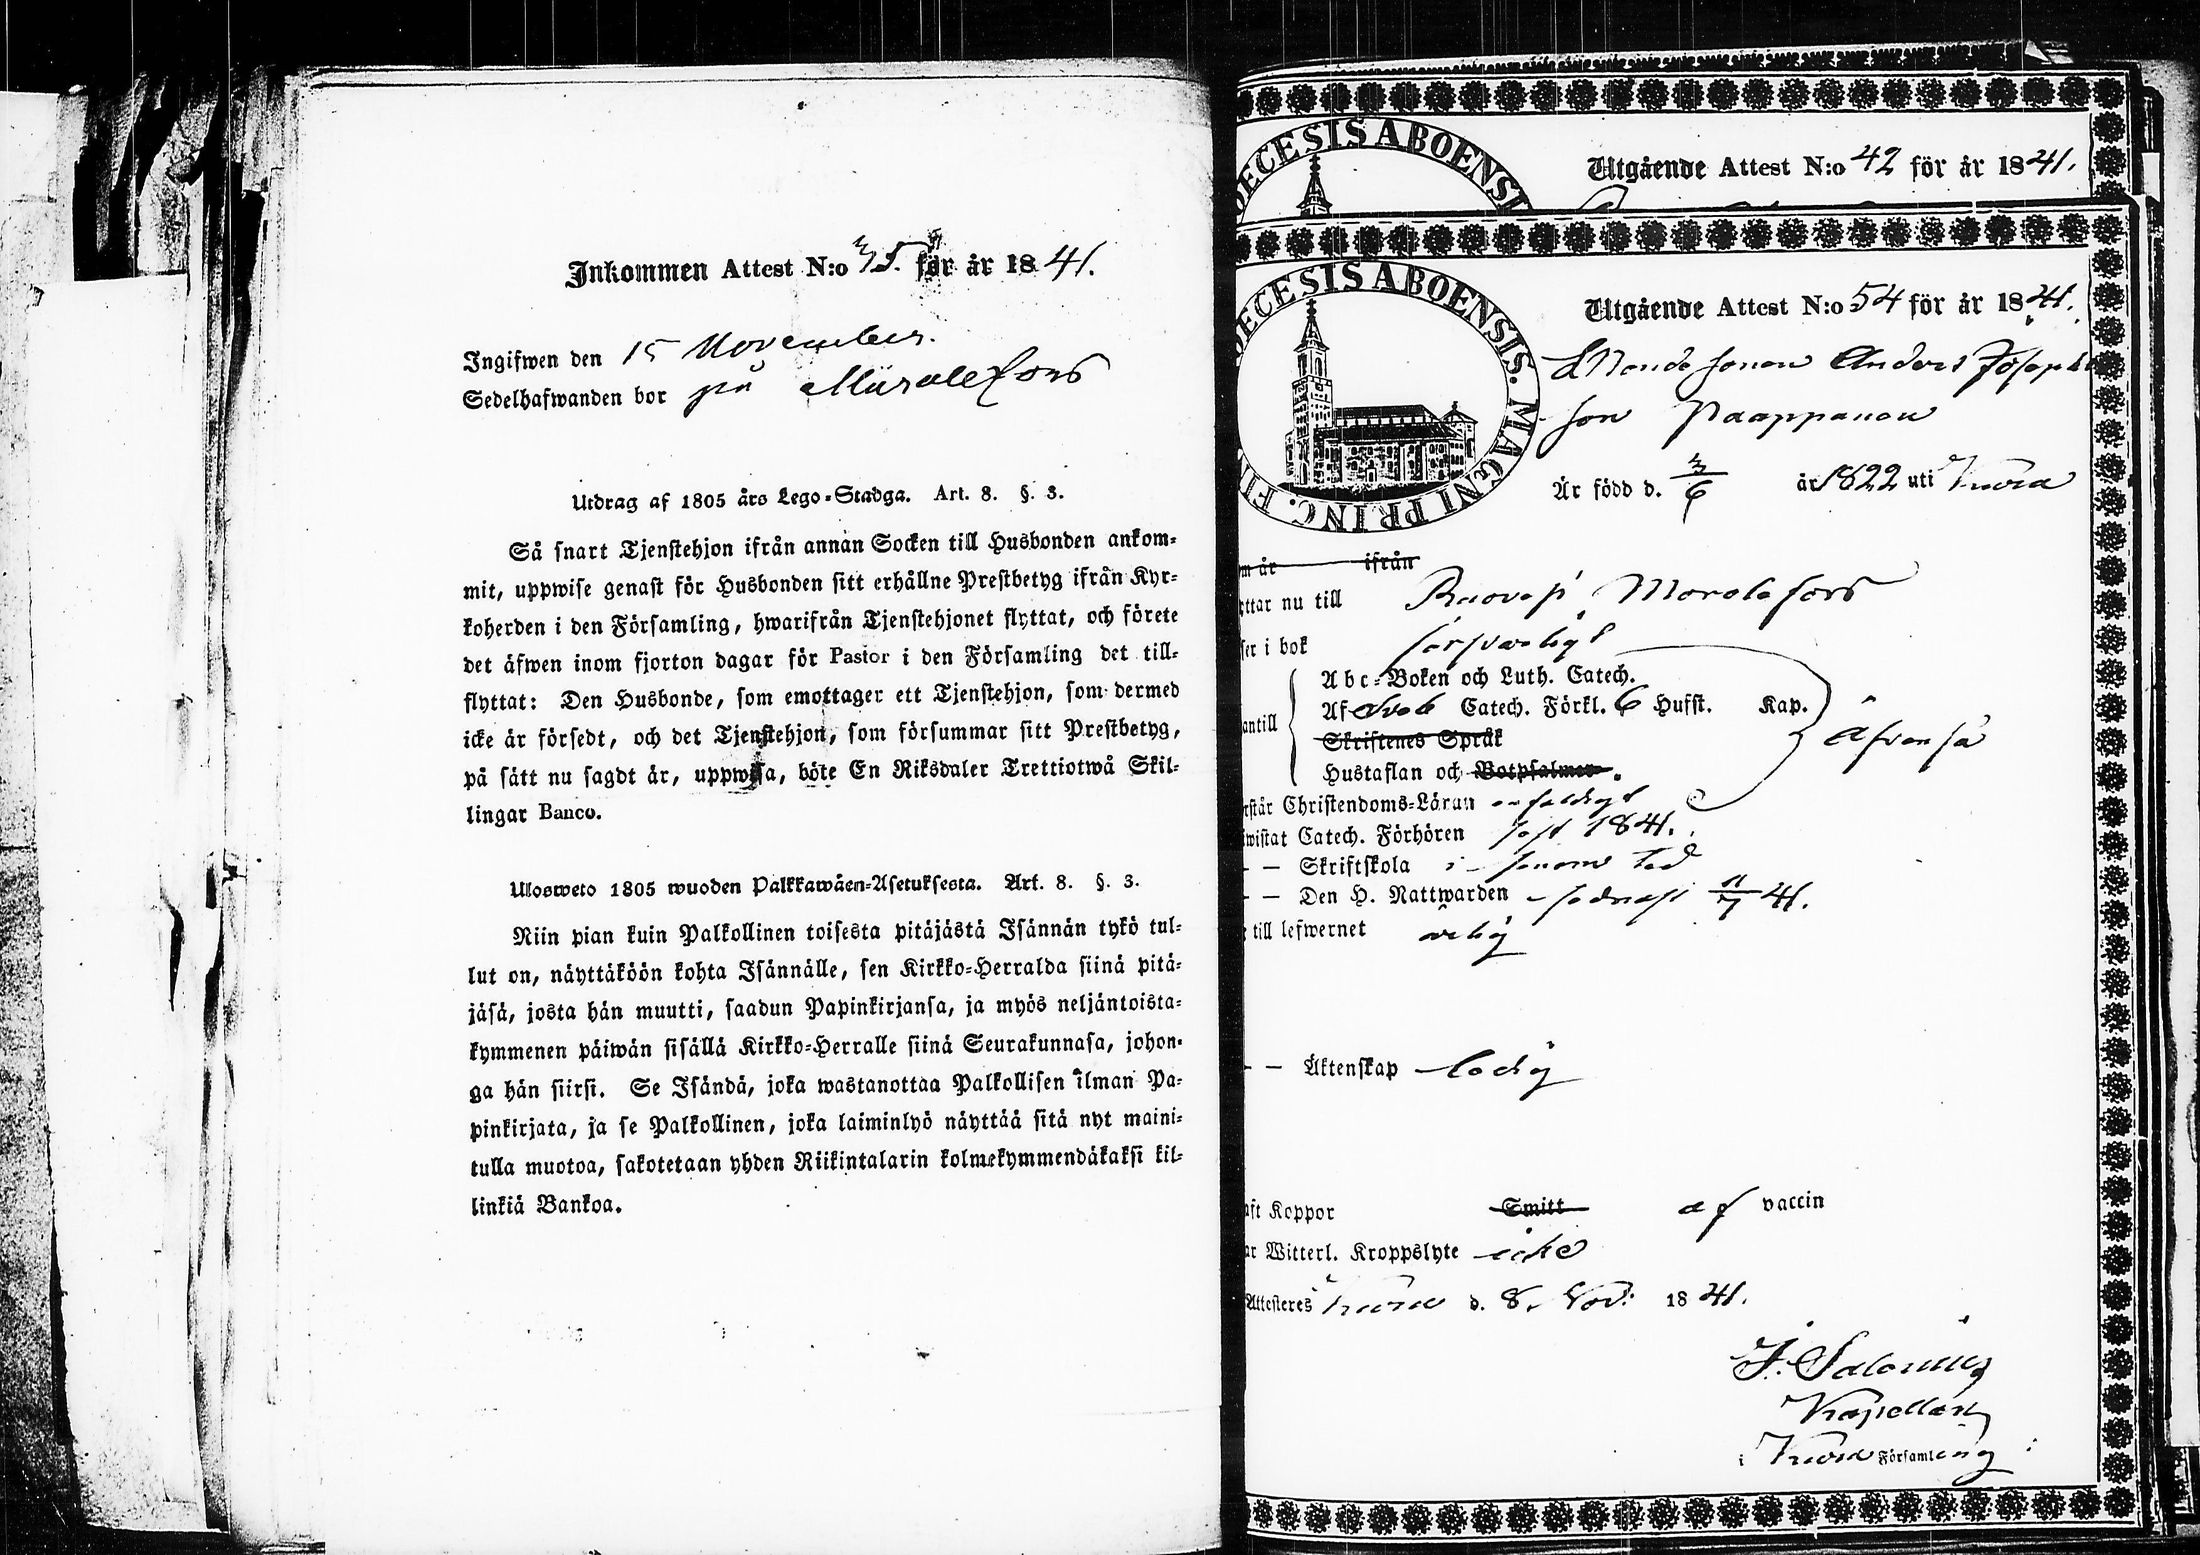 Inkommen Attest N:o 35. för år 1841.
Ingifwen den 15 November.
Sedelhafwanden bor på
Utdrag af 1805 års Lego-Stadga. Art. 8. §. 3.
Så snart Tjenstehjon ifrån annan Socken till Husbonden ankom-
mit, uppwise genast för Husbonden sitt erhållne Prestbetyg ifrån Kyr-
koherden i den Församling, hwarifrån Tjenstehjonet flyttat, och förete
det äfwen inom fjorton dagar för Pastor i den Församling det till-
flyttat: Den Husbonde, som emottager ett Tjenstehjon, som dermed
icke är försedt, och det Tjenstehjon, som försummar sitt Prestbetyg,
på sätt nu sagdt är, uppwisa, böte En Riksdaler Trettiotwå Skil-
lingar Banco.
Ulosweto 1805 wuoden Palkkawäen-Asetuksesta. Art. 8. §. 3.
Niin pian kuin Palkollinen toisesta pitäjästä Isännän tykö tul-
lut on, näyttäköön kohta Isännälle, sen Kirkko-Herralda siinä pitä-
jäsä, josta hän muutti, saadun Papinkirjansa, ja myös neljäntoista-
kymmenen päiwän sisällä Kirkko-Herralle siinä Seurakunnasa, johon-
ga hän siirsi. Se Isändä, joka wastanottaa Palkollisen ilman Pa-
pinkirjata, ja se Palkollinen, joka laiminlyö näyttää sitä nyt maini-
tulla muotoa, sakotetaan yhden Riikintalarin kolmekymmendäkaksi kil-
linkiä Bankoa.
ECESIS ABOENSI
Utgående Attest N:o 42 för år 1841.
ECESIS ABOENSIS. MAGNI PRINC. FI
Utgående Attest N:o 54 för år 1841.
Anders Joseph
son Paappanen
Är född d. 3/6 år 1822 uti Kiura
m år ifrån
ttar nu till
ser i bok försvarligt
Abc-Boken och Luth. Catech.
Af Sveb Catech. Förkl. 6 Hufst. Kap.
antill
Skriftenes Språk
äfvenså
Hustaflan och Botpsalmer.
rstår Christendoms-Läran enfaldigt
iwistat Catech. Förhören sist 1841.
— — Skriftskola i sinom tid
— — Den H. Nattwarden sednast 11/7 41.
till lefwernet ärlig
— — Äktenskap ledig
ft Koppor Smitt af vaccin
ar Witterl. Kroppslyte icke
Attesteres d. 8. Nov: 1841.
Kapellan
i Församling